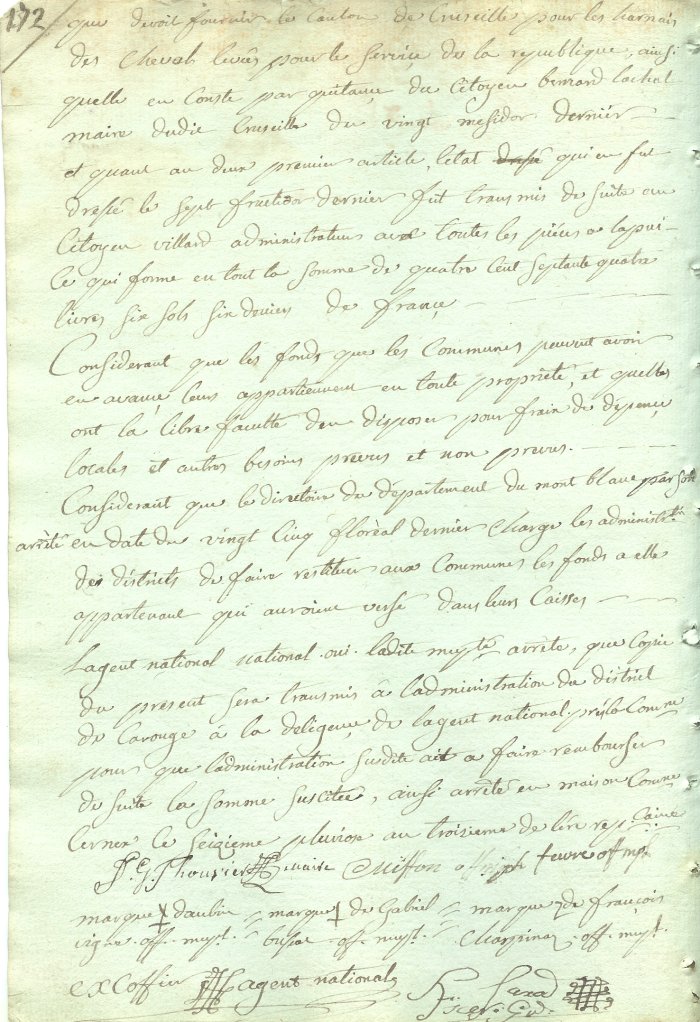 172
que devoit fournir le Canton de Cruseille pour les harnais
des Cheveaux levés pour le service de la republique, ainsi
quelle en Conste par quitance du Citoyen bernard lachat
maire dudit Cruseille du vingt mesidor dernier
et quant au deux premier article, letat qui en fut
dressé le sept fructidor dernier fut transmis de suite au
Citoyen villard administrateur avec toutes les pièces a lapui
Ce qui forme en tout la somme de quatre Cent septante quatre
livres six sols six deniers de france
Considerant que les fonds que les Communes peuvent avoir
en avance leurs appartiennent en toute propriété, et quelles
ont la libre faculté den disposer pour frais de dépence
locales et autres besoins prevus et non prevus.
Considerant que le directoire du département du mont blanc par son
arrêté en date du vingt Cinq floréal dernier Charge les administrat.
des districts de faire restituer aux Communes les fonds a elles
appartenant qui auroient versé dans leurs Caisses
Lagent national national oui ladite mupté arrête, que Copie
du présent sera transmis à ladministration du district
de Carouge à la deligence de lagent national près la Comne
pour que ladministration susdite ait a faire rembourser
de suite la somme suscitée, ainsi arrêté en maison Comne
Cernex le seizieme pluviose an troisieme de lère rep.caine
P. G. Thouvier maire Miffon joseph favre off. mpl
marque daubin marque de Gabriel marque de françois
vigne off. mupl. off. mupl. Charrinaz off. mupl.
excoffier agent national